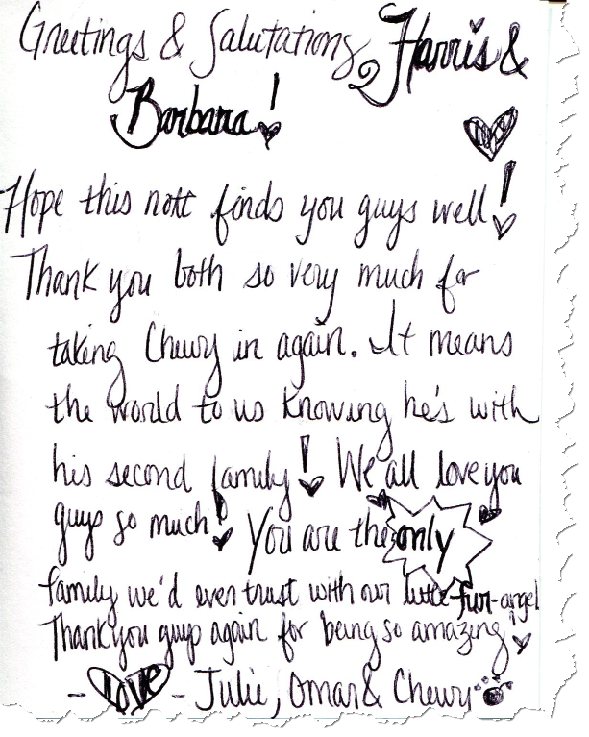 Greetings & Salutations, Harris &
Barbara!
Hope this note finds you guys well!
Thank you both so very much for
taking Chewy in again. It means
the world to us knowing he's with
his second family! We all love you
guys so much! You are the only
family we'd ever trust with our little fur-angel
Thank you guys again for being so amazing!
- Love - Julie, Omar & Chewy